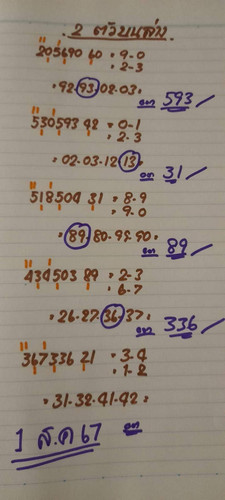 2 ตัวบนล่าง
205690 60 = 9-0
= 2-3
= 92.93.02.03. ออก 593
530593 92 = 0-1
= 2-3
= 02.03.12.13 ออก 31
518504 31 = 8-9
= 9-0
= 89.80.99.90= ออก 89
434503 89 = 2-3
= 6-7
= 26.27.36.37= ออก 336
367336 21 = 3-4
= 1-2
= 31.32.41.42 = ออก
1 ส.ค 67